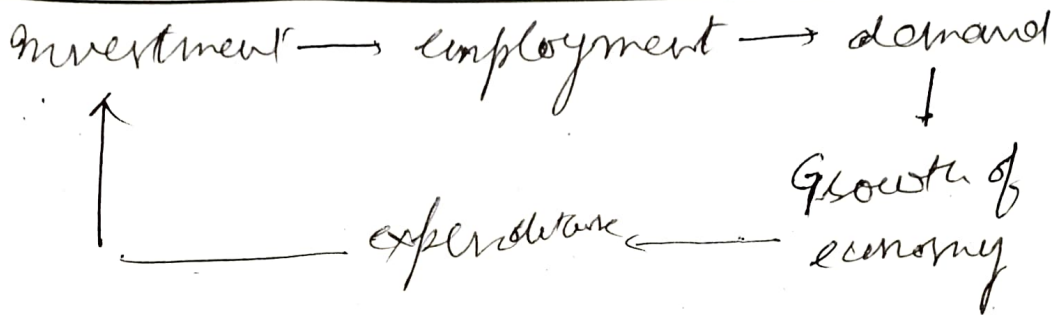 Investment → employment → demand
↓
Growth of
economy
expenditure ←
↑